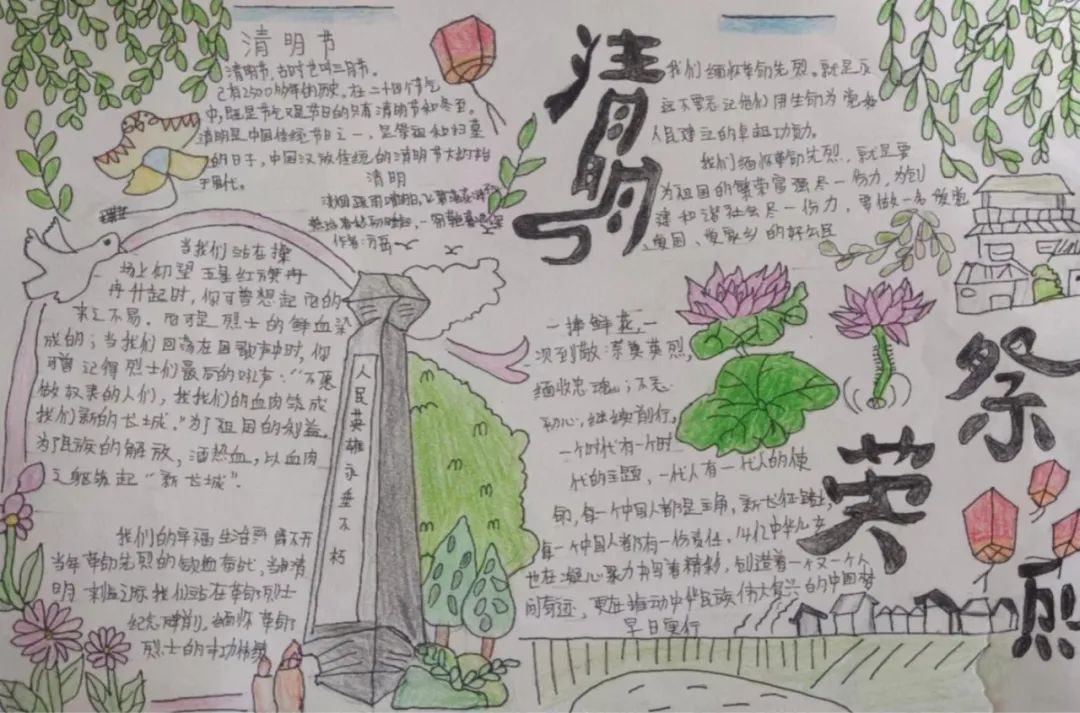 清明节
清明节，古时也叫三月节。
已有2500多年的历史。在二十四个节气
中，既是节气又是节日的只有清明节和冬至。
清明是中国传统节日之一，是祭祖和扫墓
的日子，中国汉族传统的清明节大约始
于周代。
清明
作者：万
当我们站在操
场上仰望五星红旗冉
冉升起时，你可曾想起它的
来之不易。它可是烈士的鲜血染
成的；当我们回荡在国歌声中时，你
可曾记得烈士们最后的吼声："不愿
做奴隶的人们，我我们的血肉筑成
我们新的长城。"为了祖国的利益，
为了民族的解放，洒热血，以血肉
之躯筑起"新长城"。
我们的幸福生活
当年革命先烈的
明来临之际我们站在革命烈士
纪念碑前，缅怀革命
烈士的丰功伟绩
人民英雄永垂不朽
清明
祭英烈
我们缅怀革命先烈。就是永
远不要忘记他们用生命为党和
人民建立的卓越功勋。
我们缅怀革命先烈，就是要
为祖国的繁荣富强尽一份力，为创
建和谐社会尽一份力，要做一名爱党
、爱国、爱家乡的好公民
一捧鲜花，一
次到敬：祭奠英烈，
缅怀忠魂；不忘
初心，继续前行，
一个时代有一个时
代的主题，一代人有一代人的使
命，每一个中国人都是主角，新长征路上，
每一个中国人都有一份责任，14亿中华儿女
也在凝心聚力书写着精彩，创造着一个又一个
间奇迹，更在推动中华民族伟大复兴的中国梦
早日实行